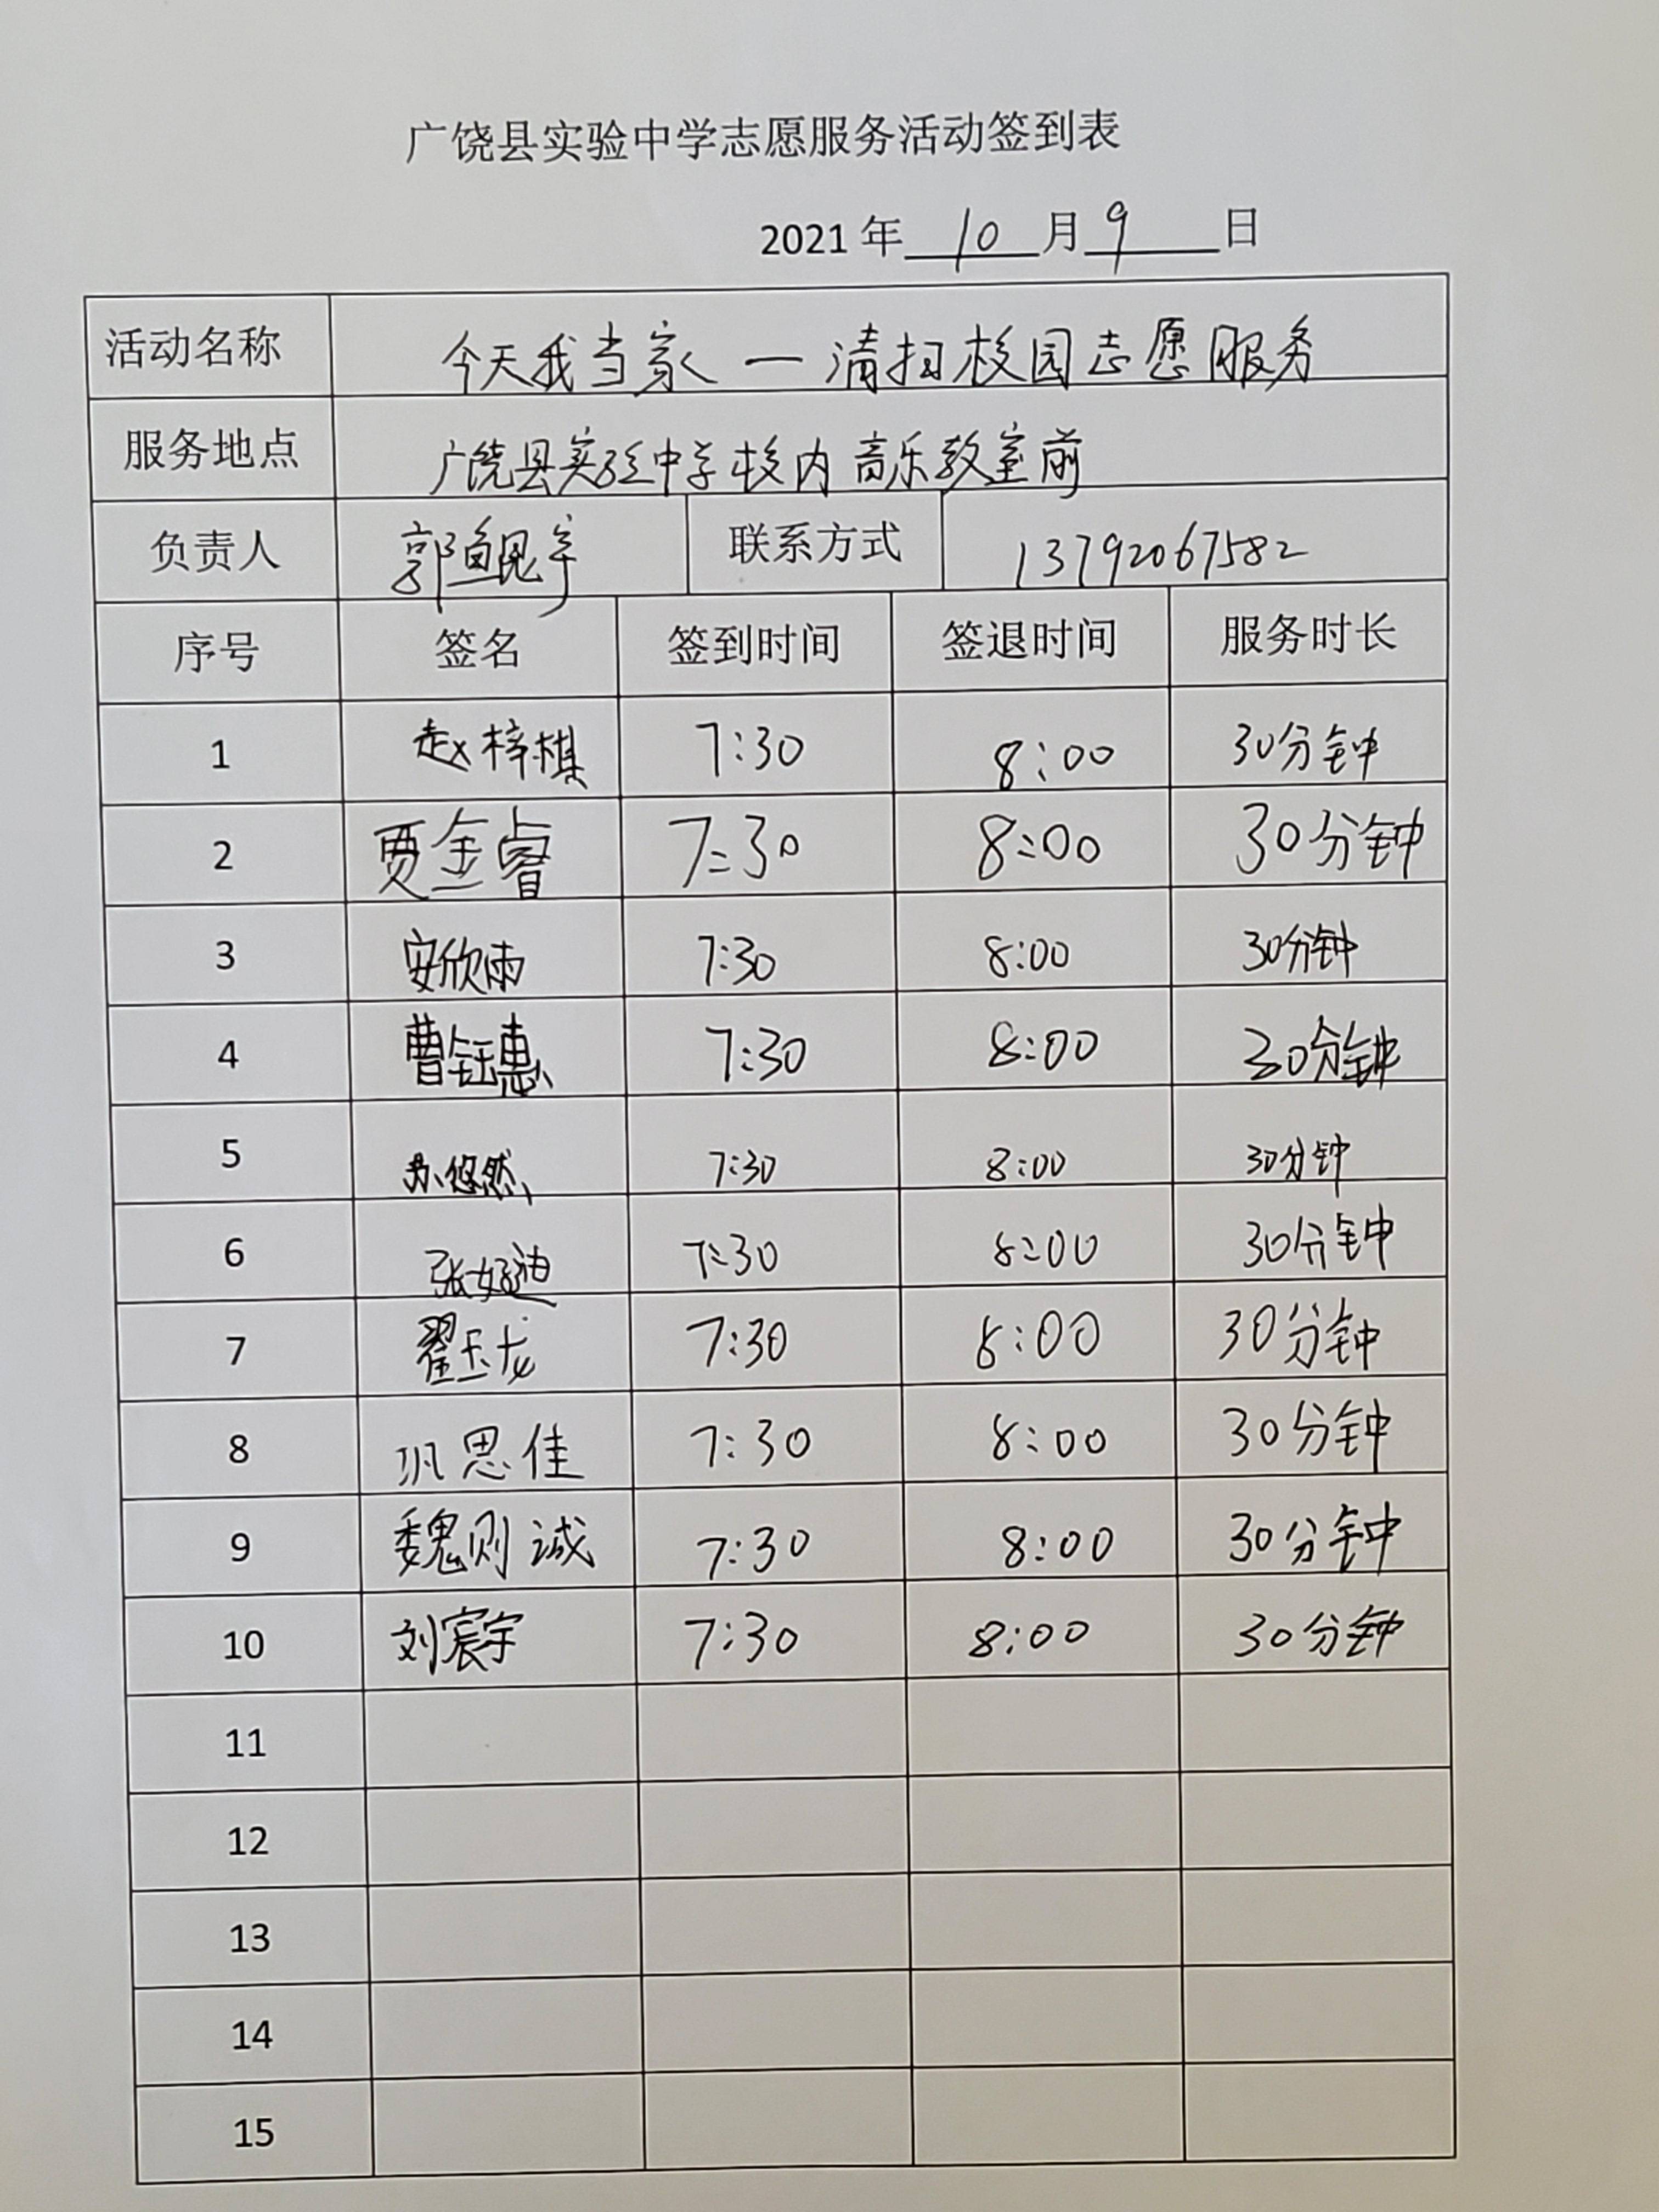 广饶县实验中学志愿服务活动签到表
2021 年 10 月 9 日
活动名称 今天我当家 — 清扫校园志愿服务
服务地点 广饶县实验中学校内 音乐教室前
负责人 郭鲲宇 联系方式 13792067582
序号 签名 签到时间 签退时间 服务时长
1 赵梓棋 7:30 8:00 30分钟
2 贾金睿 7:30 8:00 30分钟
3 安欣雨 7:30 8:00 30分钟
4 曹钰惠 7:30 8:00 30分钟
5 苏悠然 7:30 8:00 30分钟
6 张好迪 7:30 8:00 30分钟
7 翟玉龙 7:30 8:00 30分钟
8 巩思佳 7:30 8:00 30分钟
9 魏则诚 7:30 8:00 30分钟
10 刘宸宇 7:30 8:00 30分钟
11
12
13
14
15